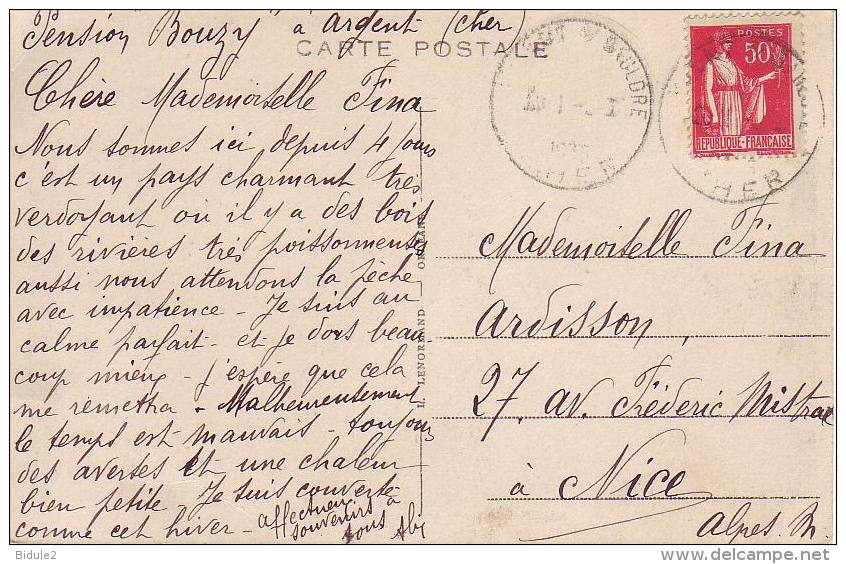 Pension "Bouzy" à Argent (Cher)
CARTE POSTALE
Chère Mademoiselle Fina
Nous sommes ici depuis 4 jours
c'est un pays charmant très
verdoyant où il y a des bois
des rivières très poissonneuses
aussi nous attendons la pêche
avec impatience - Je suis au
calme parfait - et je dors beau
coup mieux - j'espère que cela
me remettra - Malheureusement
le temps est mauvais - toujours
des averses et une chaleur
bien petite. Je suis couverte
comme cet hiver - affectueux
souvenirs à
tous
L. LENORMAND ORLÉANS
SAULDRE
CHER
POSTES
50c
REPUBLIQUE-FRANÇAISE
CHER
Mademoiselle Fina
Ardisson,
27, av. Fréderic Mistral
à Nice
Alpes. M.
Bidule2
www.delcampe.net